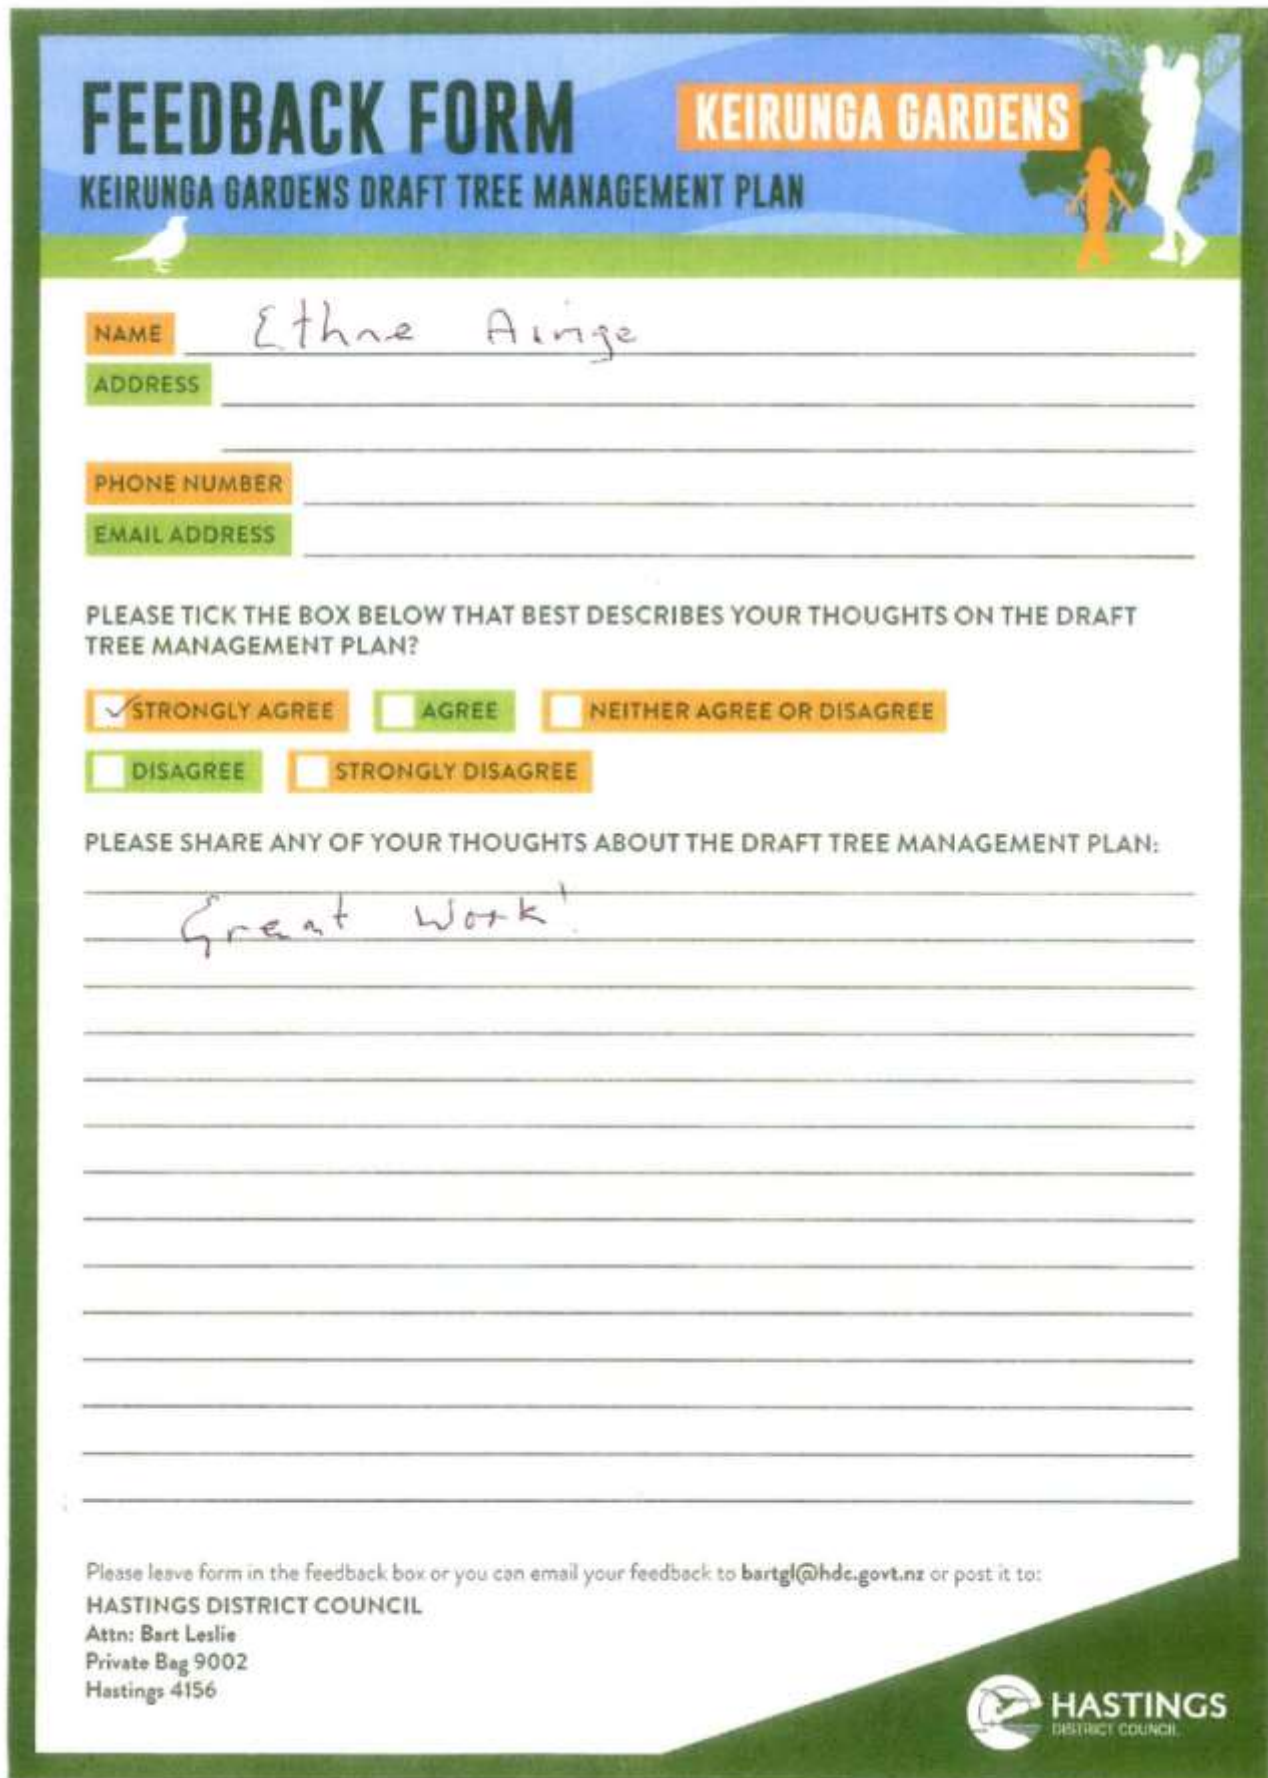 FEEDBACK FORM
KEIRUNGA GARDENS
KEIRUNGA GARDENS DRAFT TREE MANAGEMENT PLAN
NAME Ethne
ADDRESS
PHONE NUMBER
EMAIL ADDRESS
PLEASE TICK THE BOX BELOW THAT BEST DESCRIBES YOUR THOUGHTS ON THE DRAFT
TREE MANAGEMENT PLAN?
✓ STRONGLY AGREE AGREE NEITHER AGREE OR DISAGREE
DISAGREE STRONGLY DISAGREE
PLEASE SHARE ANY OF YOUR THOUGHTS ABOUT THE DRAFT TREE MANAGEMENT PLAN:
Great Work!
Please leave form in the feedback box or you can email your feedback to bartgl@hdc.govt.nz or post it to:
HASTINGS DISTRICT COUNCIL
Attn: Bart Leslie
Private Bag 9002
Hastings 4156
HASTINGS
DISTRICT COUNCIL